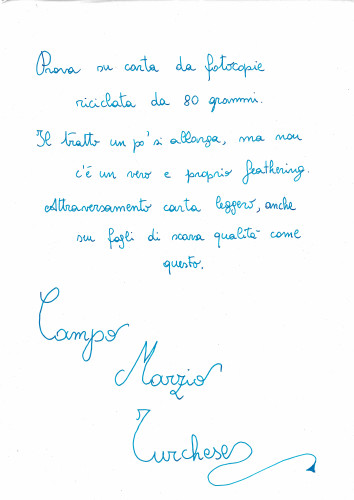 Prova su carta da fotocopie
riciclata da 80 grammi.
Il tratto un po' si allarga, ma non
c'è un vero e proprio feathering.
Attraversamento carta leggero, anche
su fogli di scarsa qualità come
questo.
Campo
Marzio
Turchese